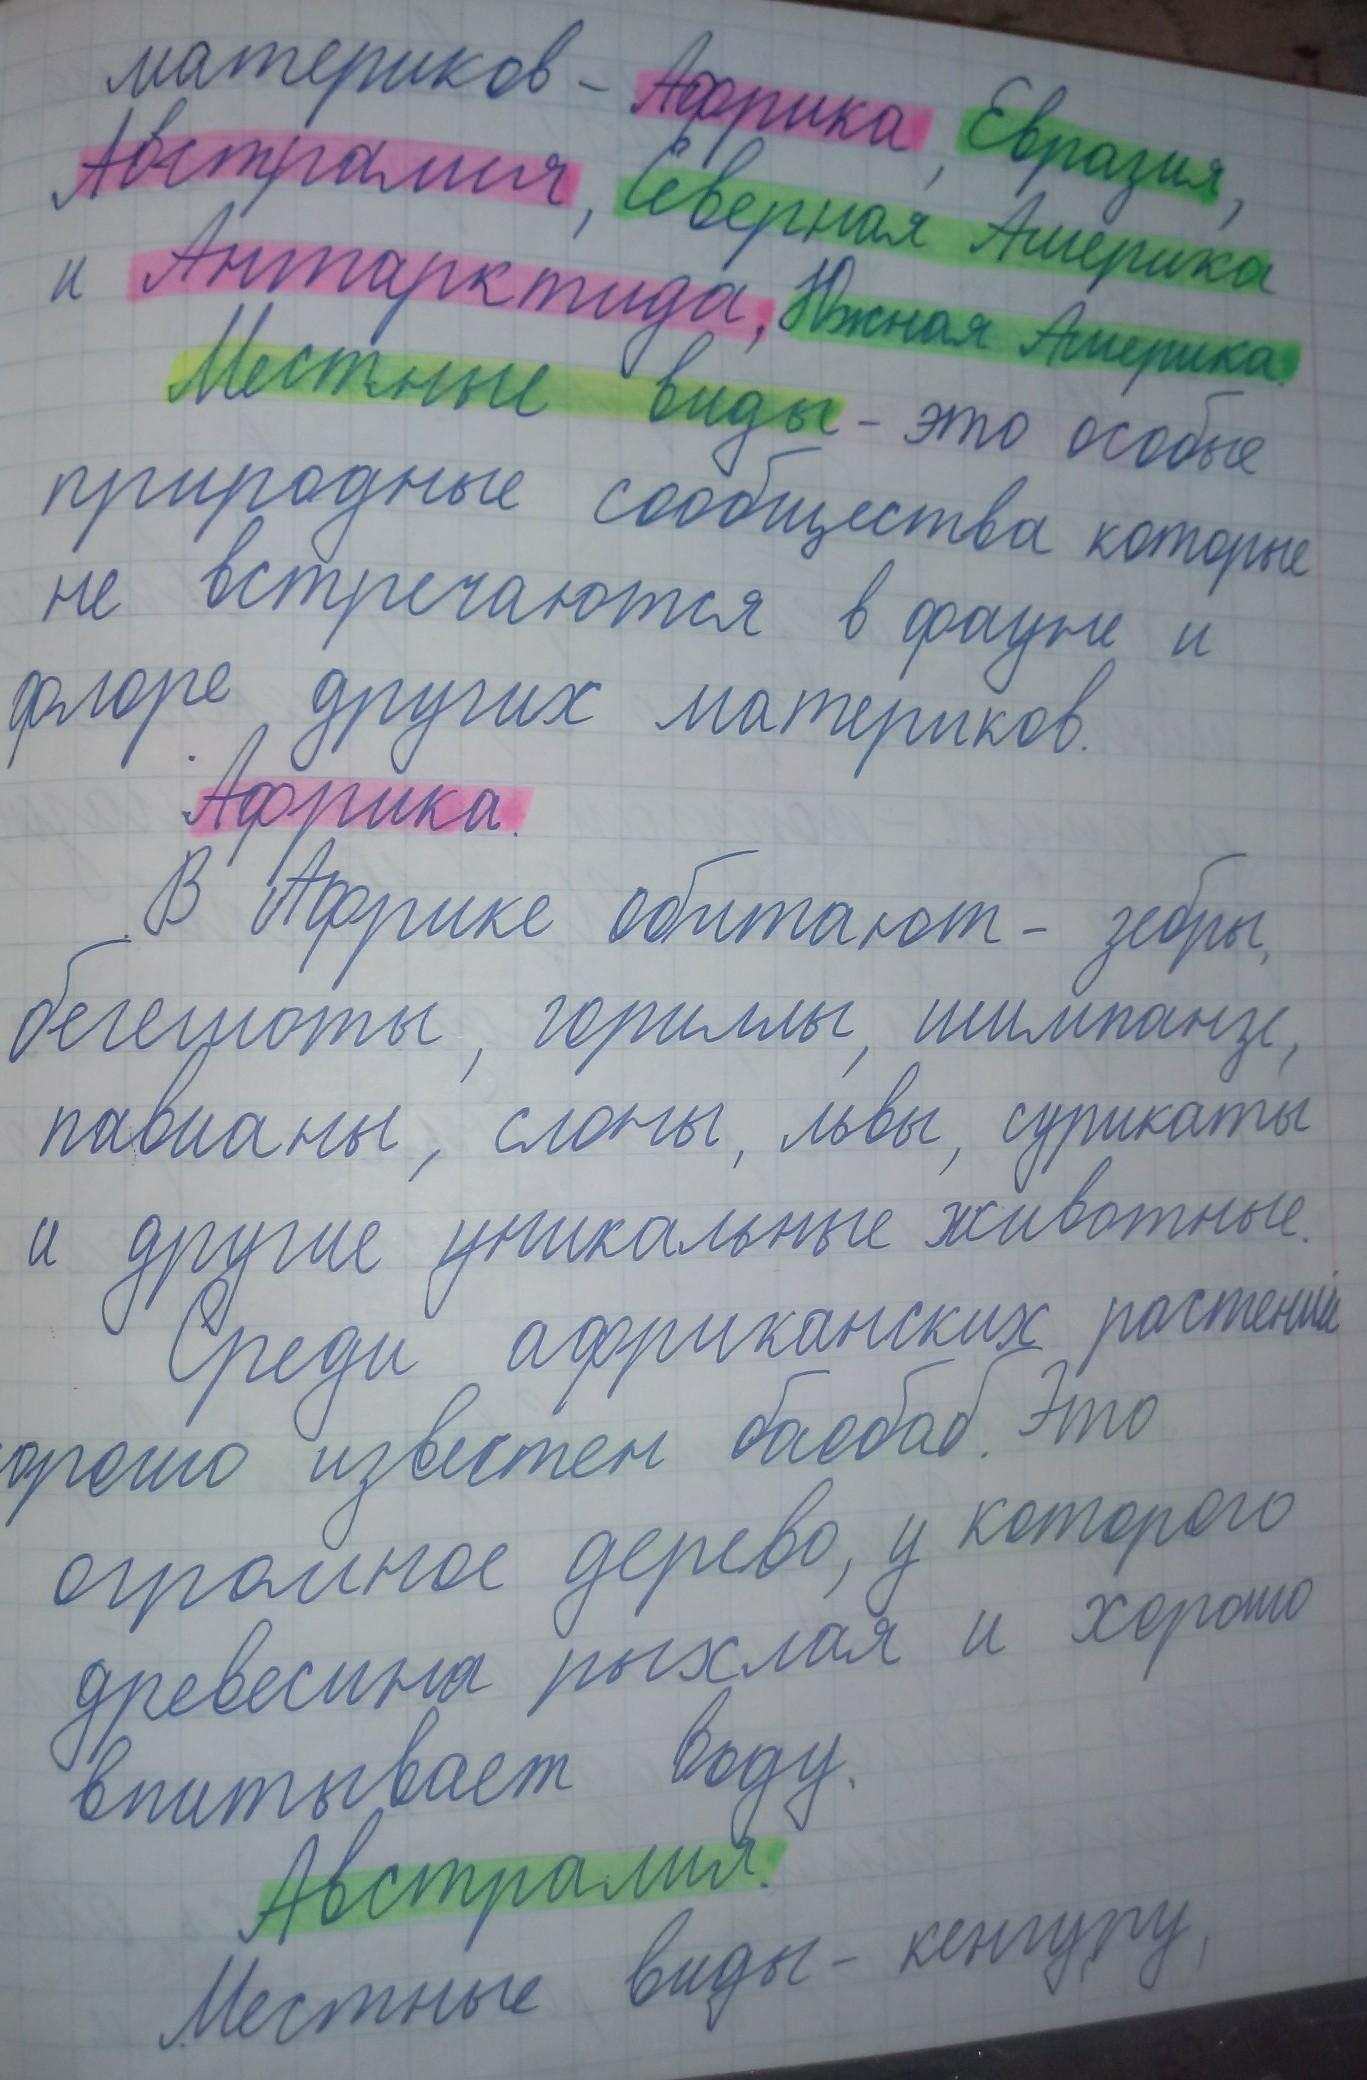 материков - Африка, Евразия,
Австралия, Северная Америка
и Антарктида, Южная Америка.
Местные виды - это особые
природные сообщества которые
не встречаются в фауне и
флоре других материков.
Африка.
В Африке обитают - зебры,
бегемоты, гориллы, шимпанзе,
павианы, слоны, львы, сурикаты
и другие уникальные животные.
Среди африканских растений
хорошо известен баобаб. Это
огромное дерево, у которого
древесина рыхлая и хорошо
впитывает воду.
Австралия.
Местные виды - кенгуру,